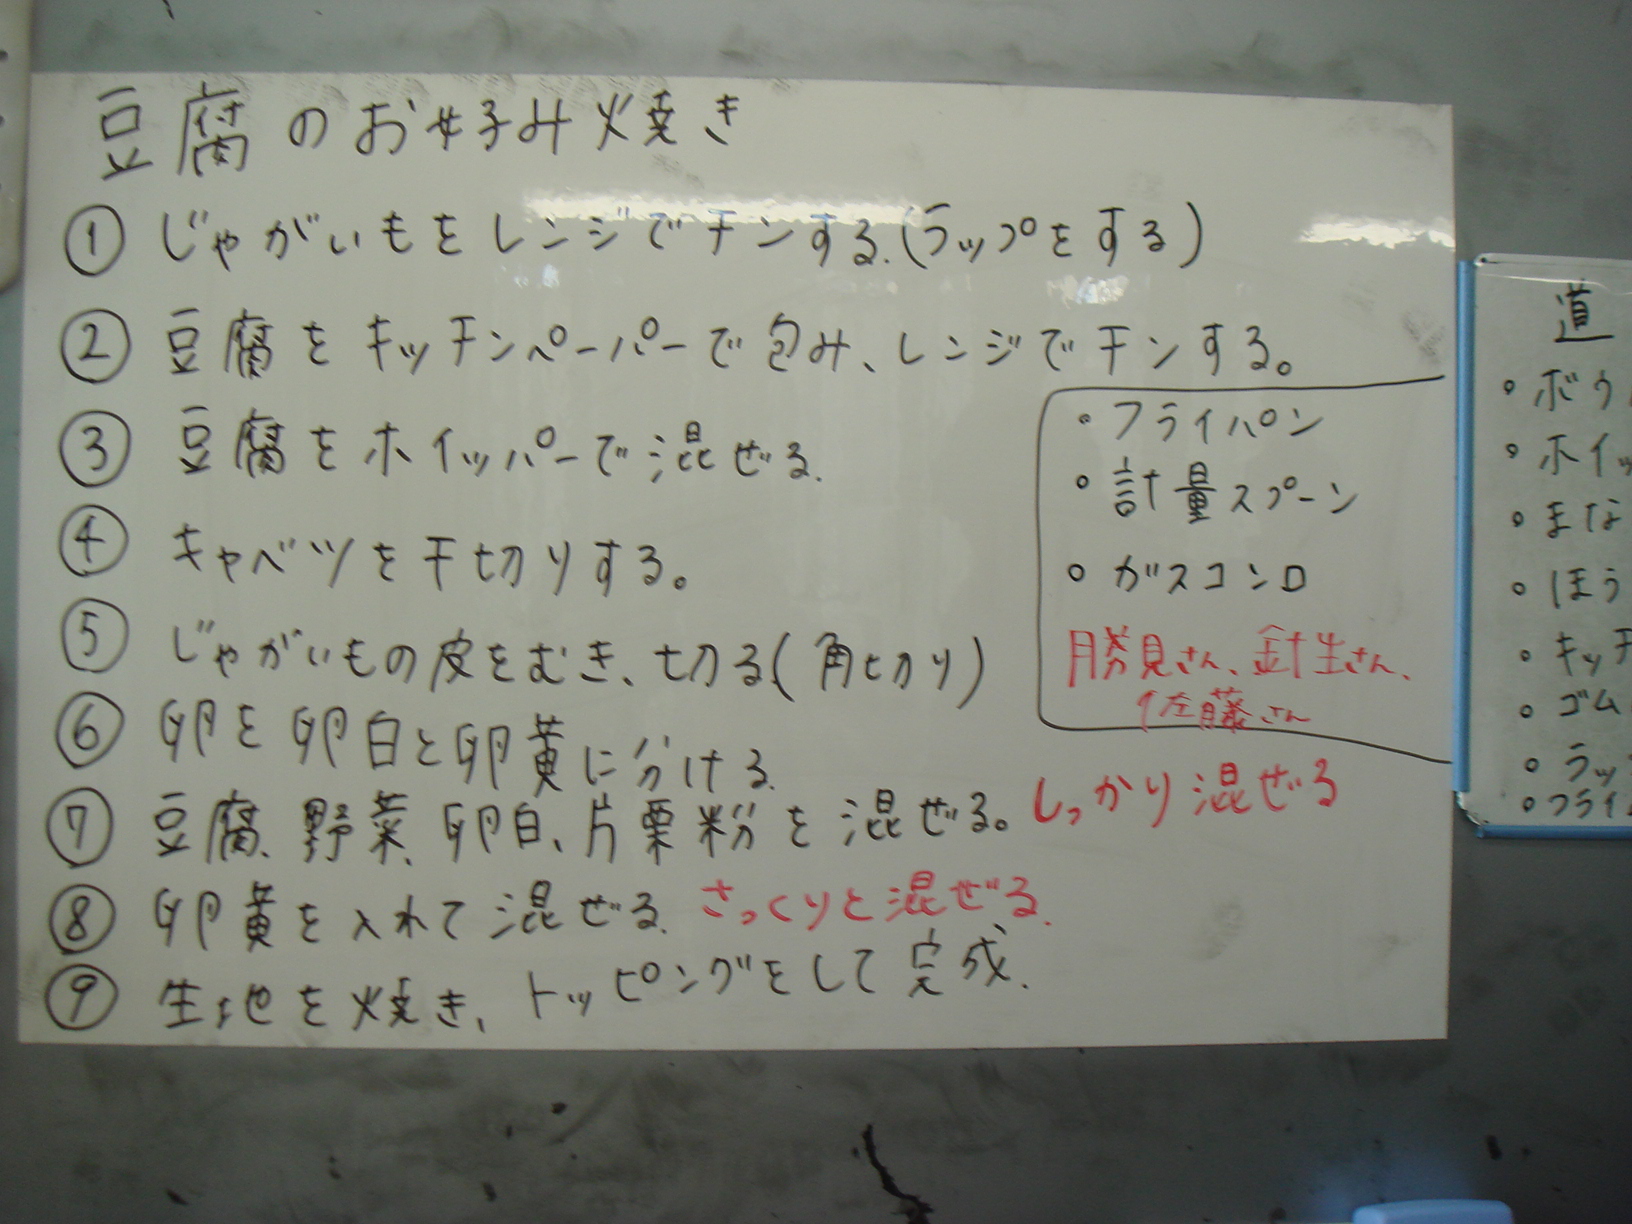 豆腐のお好み焼き
① じゃがいもをレンジでチンする.(ラップをする)
② 豆腐をキッチンペーパーで包み、レンジでチンする。
③ 豆腐をホイッパーで混ぜる.
④ キャベツを千切りする。
⑤ じゃがいもの皮をむき、切る(角切り)
⑥ 卵を卵白と卵黄に分ける.
⑦ 豆腐、野菜、卵白、片栗粉を混ぜる。しっかり混ぜる
⑧ 卵黄を入れて混ぜる. さっくりと混ぜる.
⑨ 生地を焼き、トッピングをして完成.
・フライパン
・計量スプーン
・ガスコンロ
勝見さん、針生さん、
佐藤さん
道
・ボウ
・ホイッ
・まな
・ほう
・キッチ
・ゴム
・ラッ
・フライ